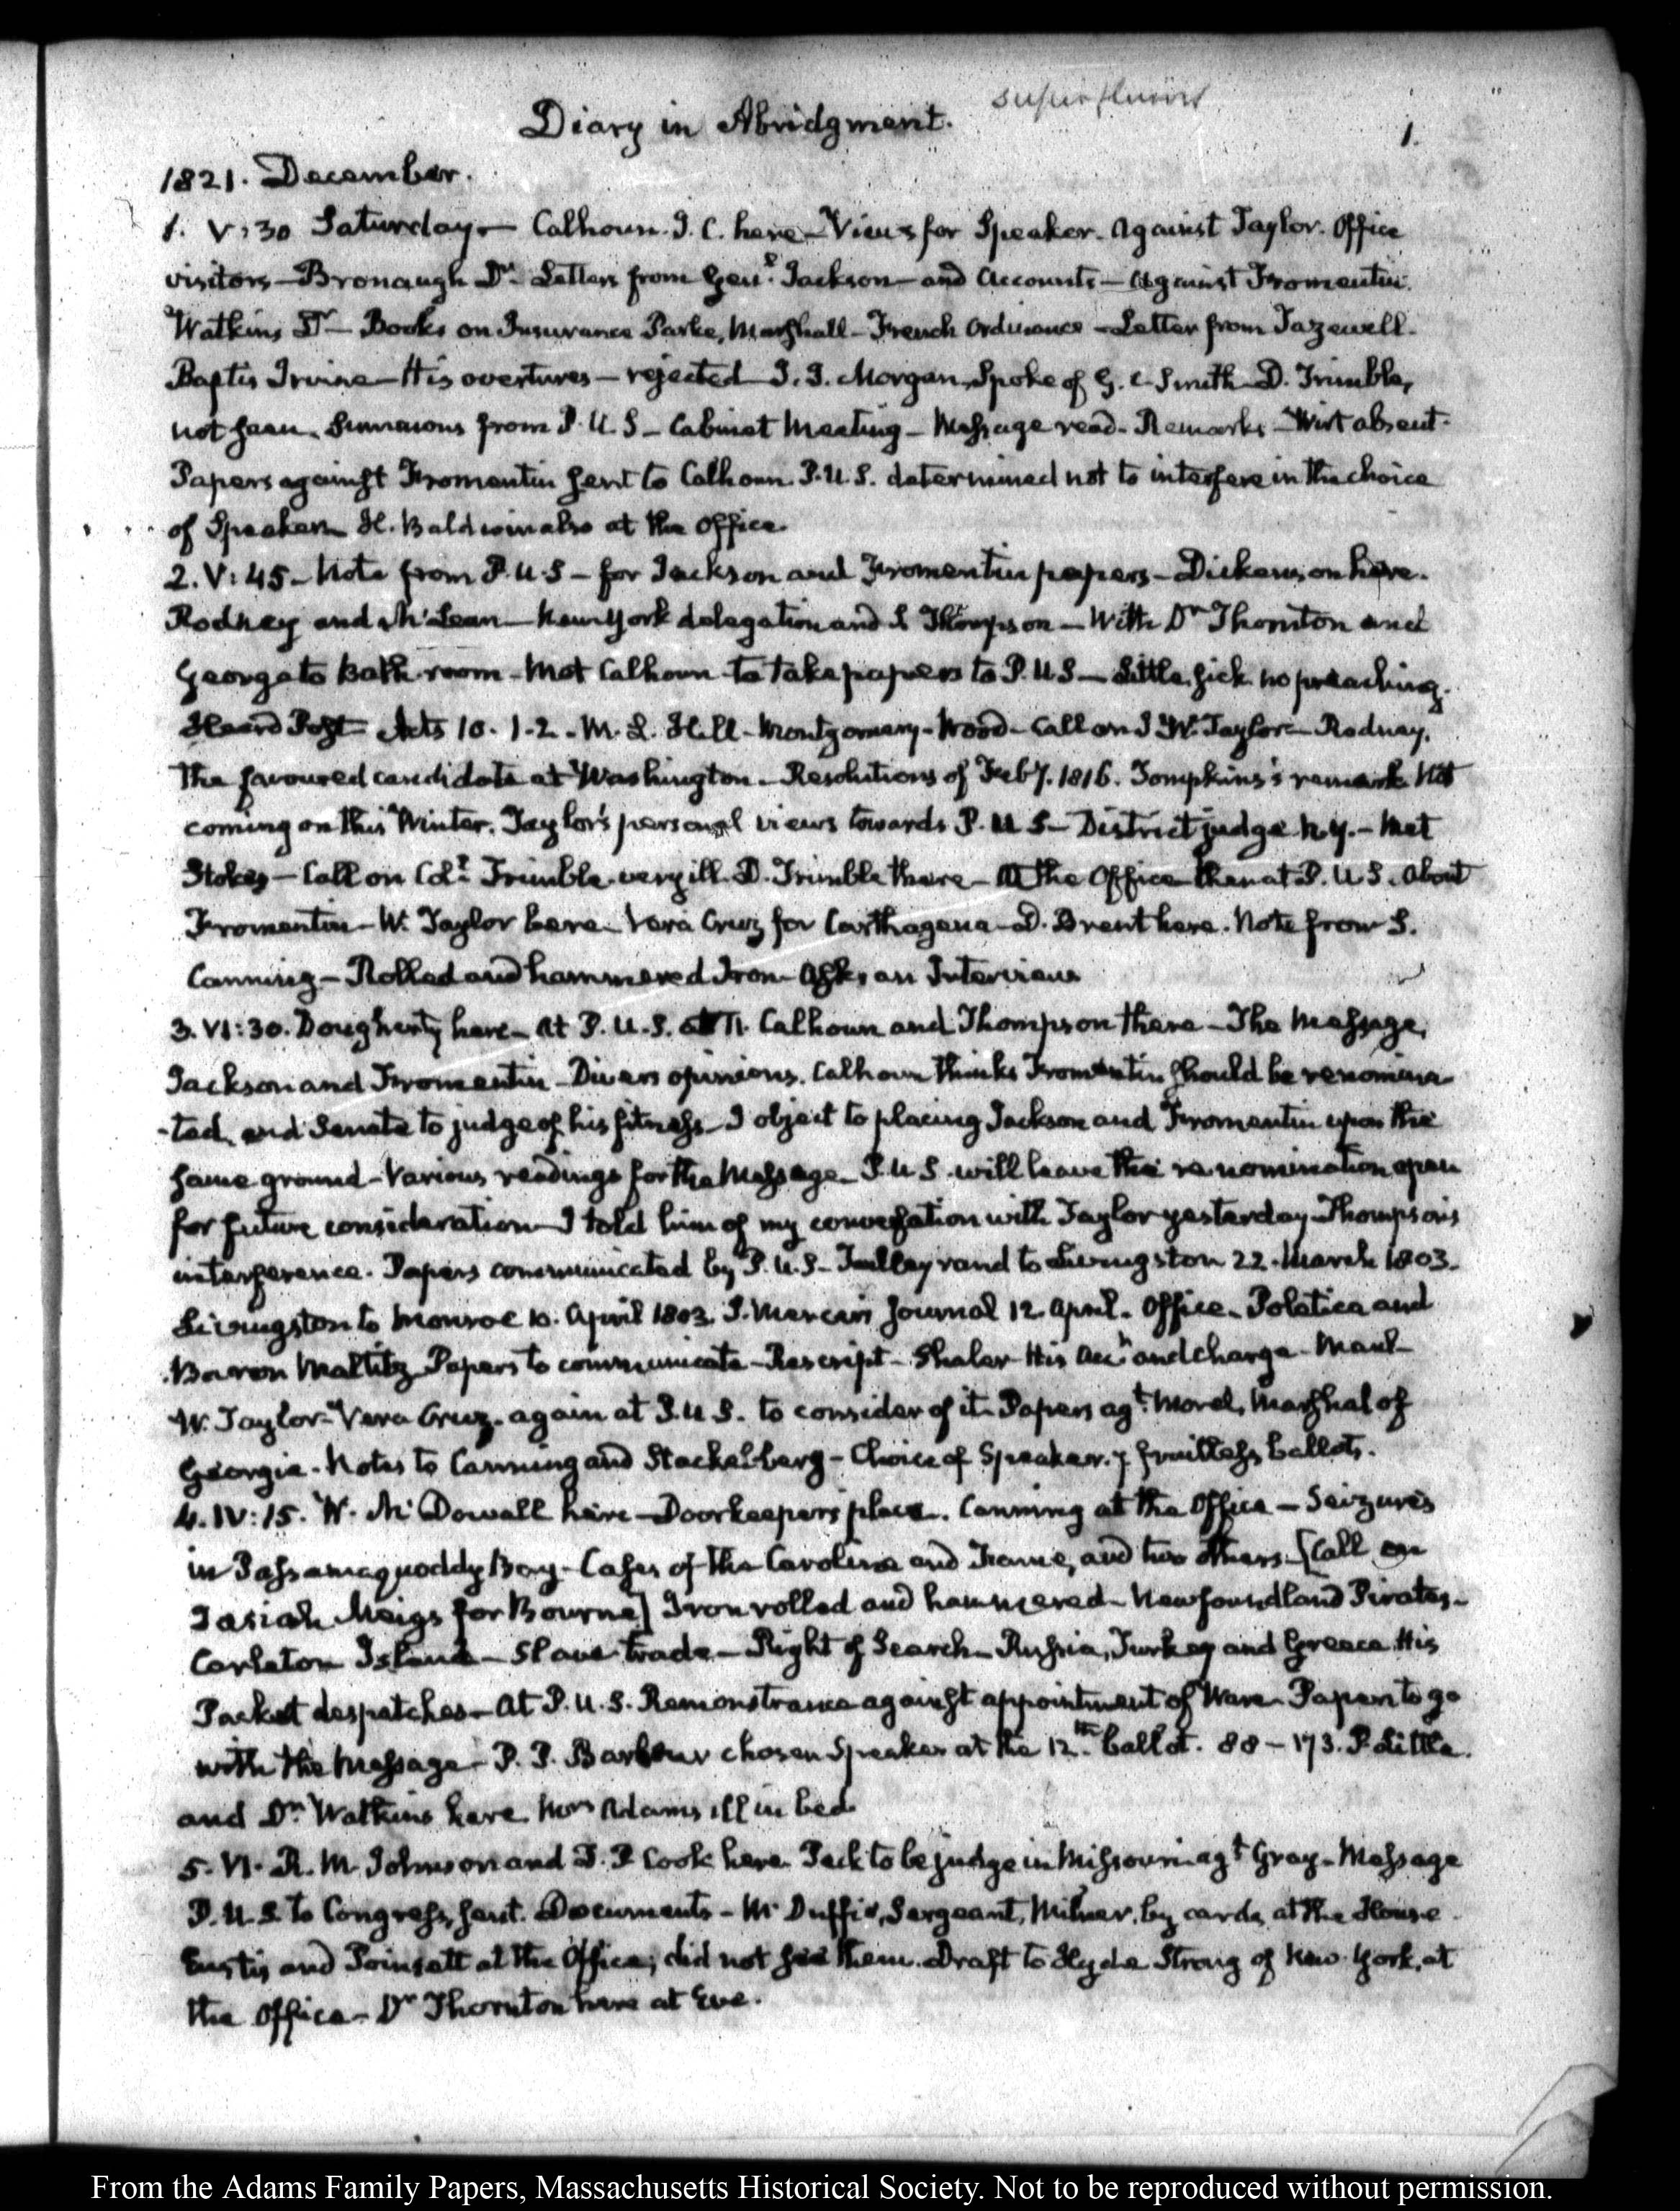 Diary in Abridgment.
superfluous
1.
1821. December.
1. V:30 Saturday — Calhoun. J. C. here — Views for Speaker. Against Taylor. Office
visitors — Bronaugh Dr. Letters from Genl. Jackson — and Accounts — Against Fromentin.
Watkins Dr — Books on Insurance Parke, Marshall — French Ordinance — Letter from Tazewell.
Baptis Irvine — His overtures — rejected J. J. Morgan, Spoke of G. C. Smith — D. Trimble,
not seen. Summons from P. U. S — Cabinet Meeting — Message read — Remarks — Wirt absent.
Papers against Fromentin sent to Calhoun. P. U. S. determined not to interfere in the choice
of Speaker H. Baldwin also at the office.
2. V:45 — Note from P. U. S — for Jackson and Fromentin papers — Dickerson here.
Rodney and McLean — New York delegation and S Thompson — With Dr Thornton and
George to Bath room — Met Calhoun to take papers to P. U S — Little sick no preaching.
Heard Post Acts 10. 1-2. M. L. Hill — Montgomery — Wood — Call on J W. Taylor — Rodney,
the favoured candidate at Washington — Resolutions of Feby. 1816. Tompkins's remark. Not
coming on this Winter. Taylor's personal views towards P. U S — District judge N. Y. — Met
Stokes — Call on Coll. Trimble very ill. D. Trimble there — At the Office then at P. U. S. About
Fromentin — W. Taylor here — Vera Cruz for Carthagena — D. Brent here. Note from S.
Canning — Rolled and hammered Iron — Asks an Interview
3. VI:30. Dougherty here — At P. U. S. Calhoun and Thompson there — The Message,
Jackson and Fromentin — Divers opinions. Calhoun thinks Fromentin should be renomina
-ted, and Senate to judge of his fitness — I object to placing Jackson and Fromentin upon the
same ground — Various readings for the Message — P. U S. will leave the renomination open
for future consideration — I told him of my conversation with Taylor yesterday — Thompson's
interference. Papers communicated by P. U. S — Talleyrand to Livingston 22. March 1803.
Livingston to Monroe 10. April 1803. J. Mercer's Journal 12 April. Office — Poletica and
Baron Maltitz — Papers to communicate — Rescript — Shaler — His Acct and charge — Maul
W. Taylor — Vera Cruz — again at P. U S. to consider of it — Papers agt. Morel, Marshal of
Georgia. Notes to Canning and Stackelberg — Choice of Speaker. 7 fruitless ballots.
4. IV:15. W. McDowall here — Doorkeeper's place. Canning at the Office — Seizures
in Passamaquoddy Bay — Cases of the Carolina and Fame, and two others. [Call on
Josiah Meigs for Bourne] Iron rolled and hammered — Newfoundland Pirates —
Carleton Island — Slave trade — Right of Search — Russia, Turkey and Greece. His
Packet despatches — At P. U. S. Remonstrance against appointment of Ware — Papers to go
with the Message — P. P. Barbour chosen Speaker at the 12th. ballot. 88 — 173. P. Little.
and Dr. Watkins here Mrs Adams ill in bed
5. VI. R. M. Johnson and D. P. Cook here Peck to be judge in Missouri agt Gray — Message
P. U. S to Congress, sent. Documents — McDuffie, Sergeant, Milnor, by cards, at the House.
Eustis and Poinsett at the Office; did not see them. Draft to Hyde Strong of New York, at
the Office — Dr Thornton here at Eve.
From the Adams Family Papers, Massachusetts Historical Society. Not to be reproduced without permission.